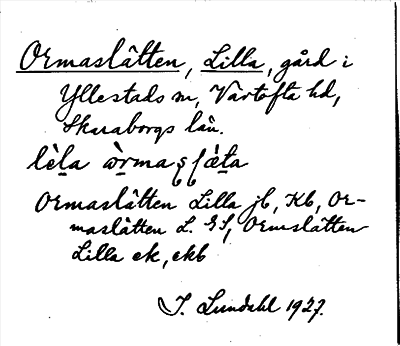 Ormaslätten, Lilla, gård i
Yllestads sn, Vartofta hd,
Skaraborgs län.
Ormaslätten Lilla jb, Kb, Or-
maslätten L. GS, Ormslätten
Lilla ek, ekb
J. Lundahl 1927.